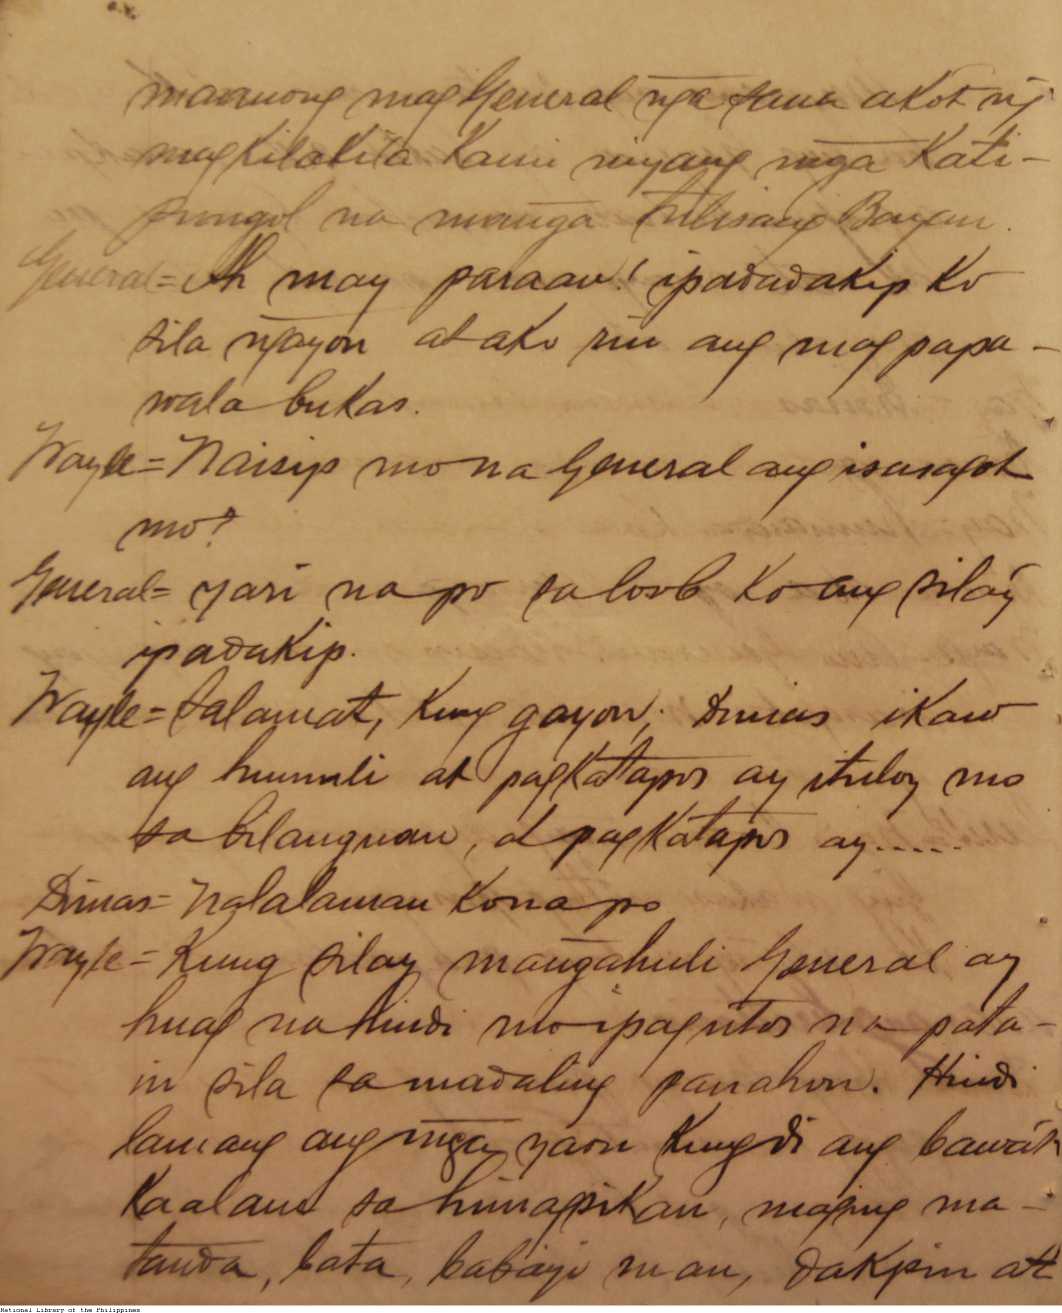 maurunong mag General nga sana ako't ng
magkilakila kami niyang mga Kati-
pungol na manga tulisang Bayan.
General = Ah may paraan! ipadadakip ko
sila ngayon at ako rin ang magpapa-
wala bukas.
Wayle = Naisip mo na General ang isasagot
mo?
General = yari na po sa loob ko ang sila'y
ipadakip.
Wayle = Salamat, kung gayon; Dimas ikaw
ang humuli at pagkatapos ay ituloy mo
sa bilanguan, at pagkatapos ay.....
Dimas = Nalalaman ko na po
Wayle = Kung sila'y mangahuli General ay
huag na hindi mo ipagutos na pata-
in sila sa madaling panahon. Hindi
lamang ang mga yaon kungdi ang bawa't
kaalam sa himagsikan, maging ma-
tanda, bata, babayi man, dakpin at
National Library of the Philippines